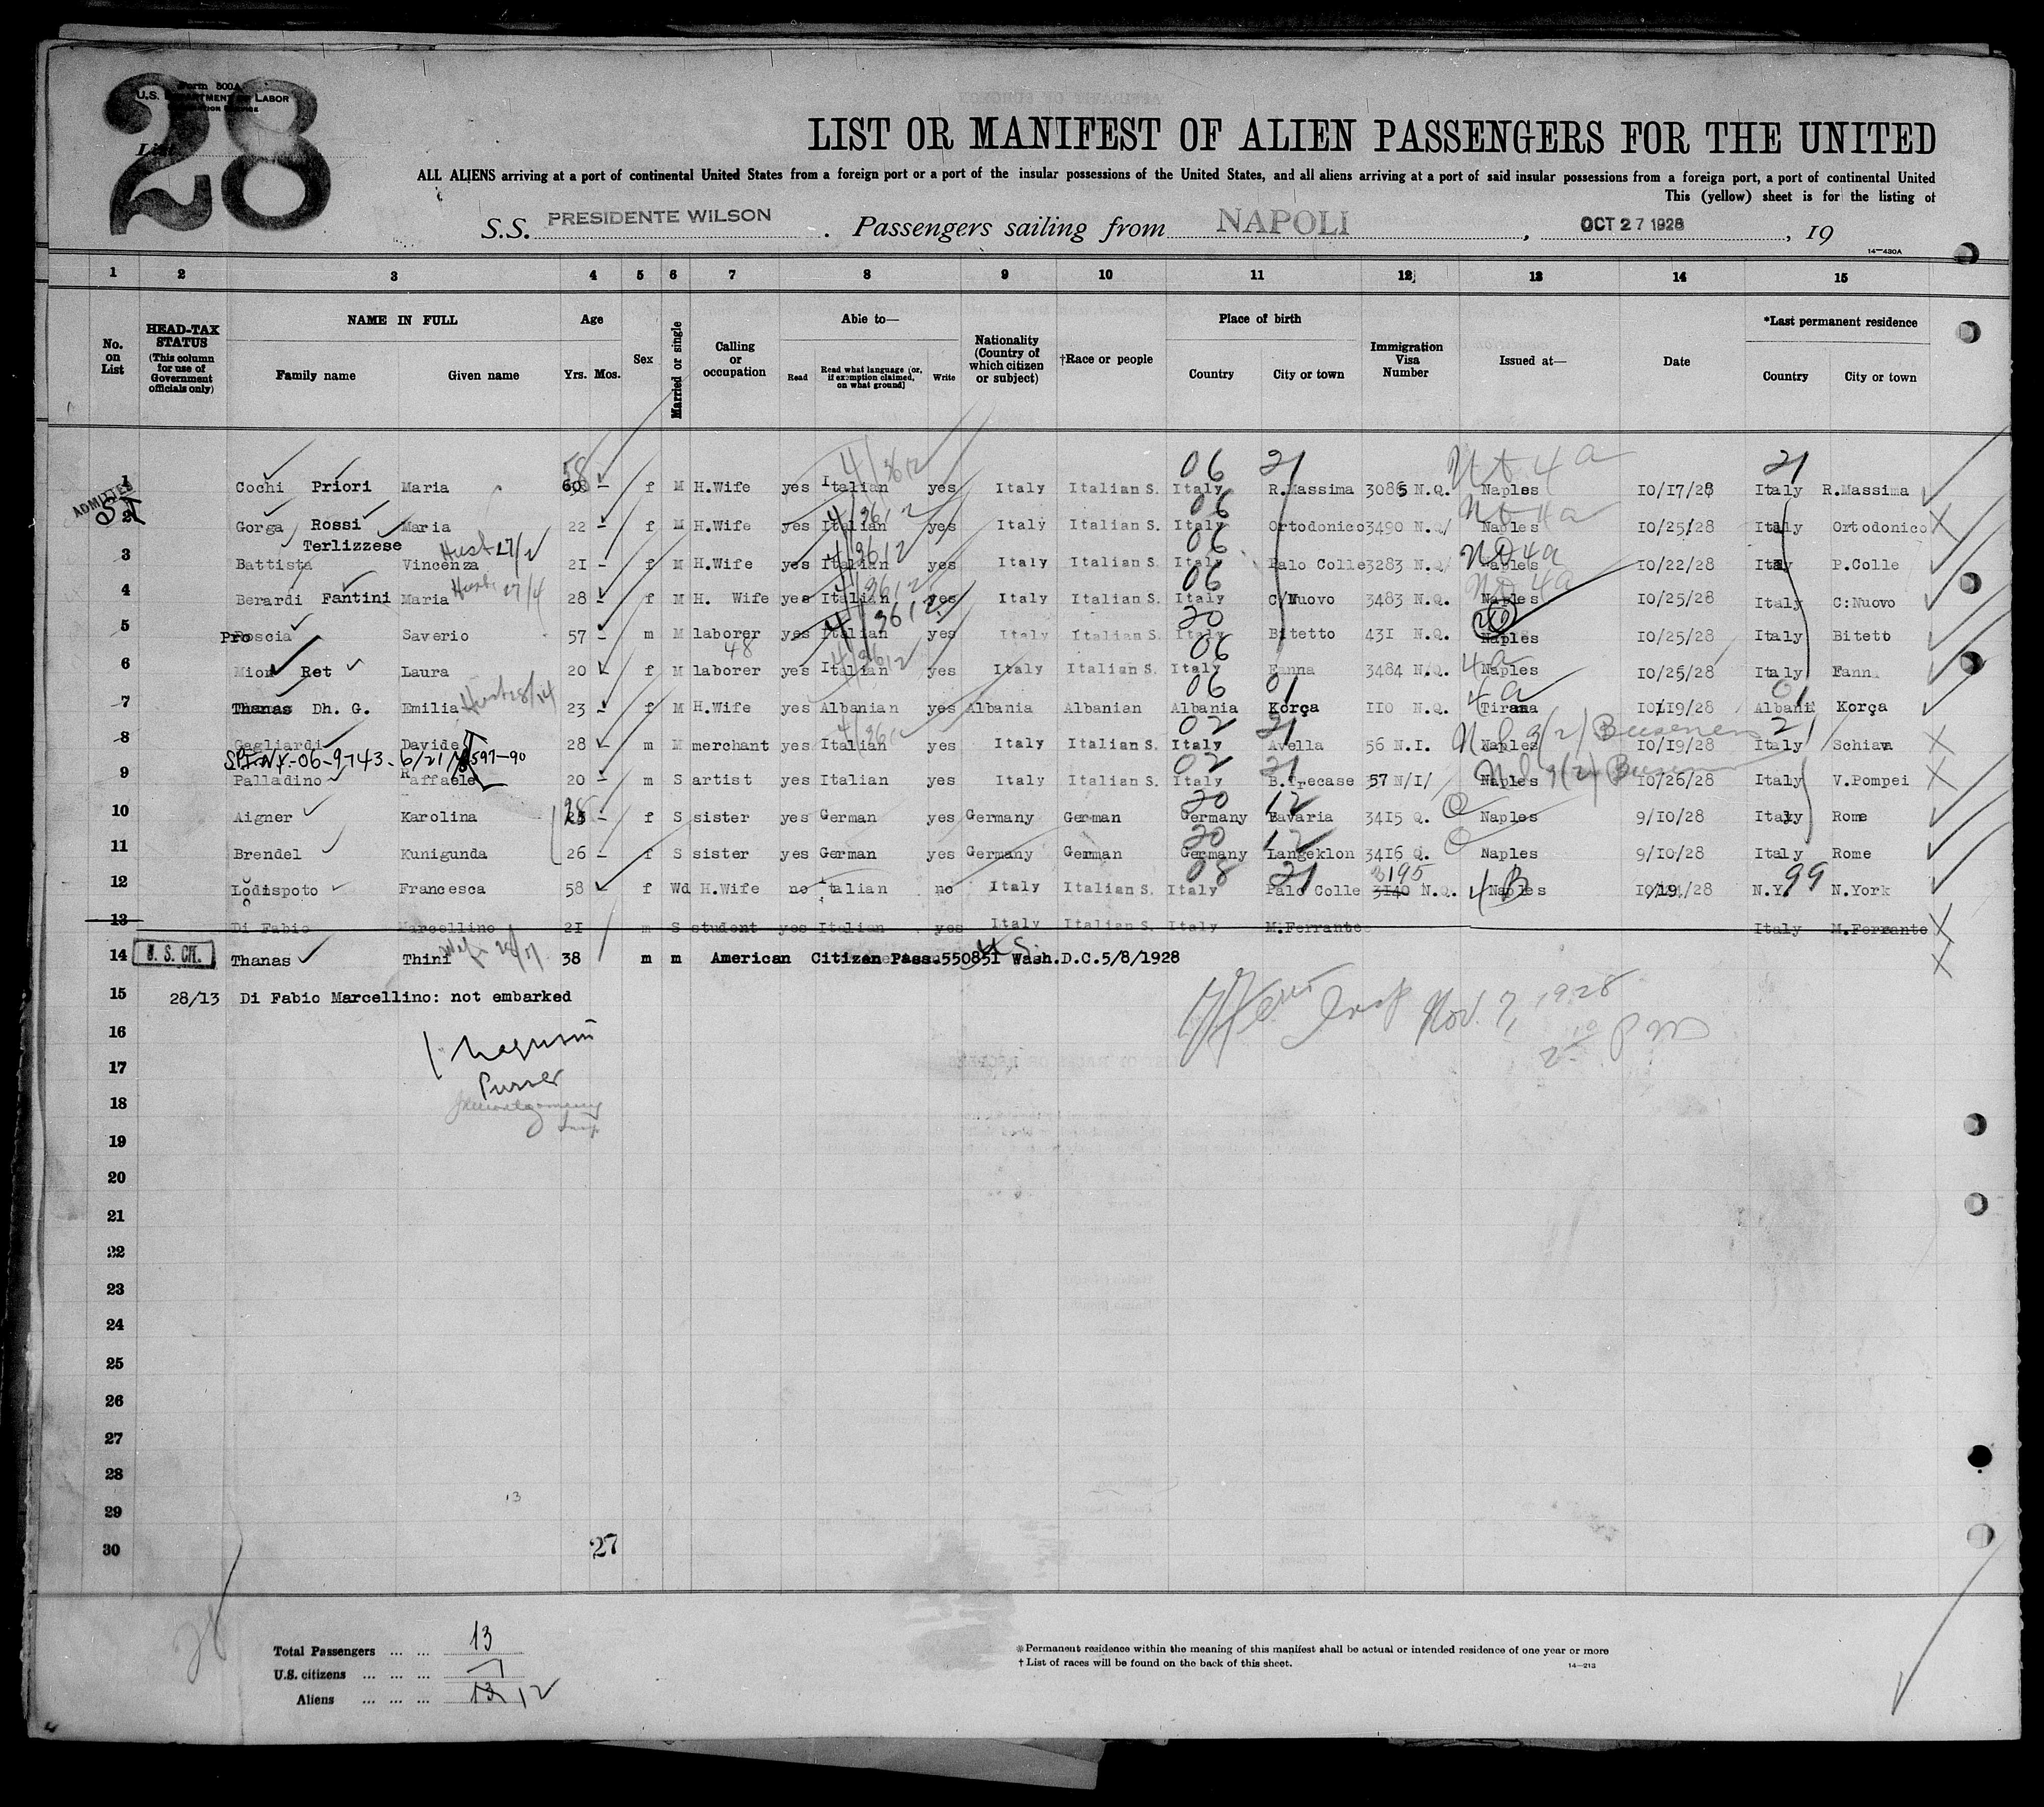 28
Form 500A
U.S. DEPARTMENT OF LABOR
List
LIST OR MANIFEST OF ALIEN PASSENGERS FOR THE UNITED
ALL ALIENS arriving at a port of continental United States from a foreign port or a port of the insular possessions of the United States, and all aliens arriving at a port of said insular possessions from a foreign port, a port of continental United
This (yellow) sheet is for the listing of
S.S. PRESIDENTE WILSON. Passengers sailing from NAPOLI, OCT 27 1928, 19
14-430A
1 2 3 4 5 6 7 8 9 10 11 12 13 14 15
No. on List
HEAD-TAX STATUS (This column for use of Government officials only)
NAME IN FULL
Family name Given name
Age
Yrs. Mos.
Sex
Married or single
Calling or occupation
Able to—
Read Read what language [or, if exemption claimed, on what ground] Write
Nationality (Country of which citizen or subject)
†Race or people
Place of birth
Country City or town
Immigration Visa Number
Issued at—
Date
*Last permanent residence
Country City or town
58 4/3612 06 21 Nt 4a 21
1 Cochi Priori Maria 60 – f M H.Wife yes Italian yes Italy Italian S. Italy R.Massima 3085 N.Q. Naples 10/17/28 Italy R.Massima
ADMITTED
SI 4/3612 06 4a
2 Gorga Rossi Maria 22 – f M H.Wife yes Italian yes Italy Italian S. Italy Ortodonico 3490 N.Q/ Naples 10/25/28 Italy Ortodonico X
Terlizzese Husb 27/2 4/3612 06 4a
3 Battista Vincenza 21 – f M H.Wife yes Italian yes Italy Italian S. Italy Palo Colle 3283 N.Q/ Naples 10/22/28 Italy P.Colle
Husb 27/4 4/3612 06 4a
4 Berardi Fantini Maria 28 – f M H. Wife yes Italian yes Italy Italian S. Italy C/Nuovo 3483 N.Q. Naples 10/25/28 Italy C:Nuovo
4/3612 20
5 Proscia Saverio 57 – m M laborer yes Italian yes Italy Italian S. Italy Bitetto 431 N.Q. Naples 10/25/28 Italy Biteto
48 4/3612 06 4a
6 Mion Ret Laura 20 – f M laborer yes Italian yes Italy Italian S. Italy Fanna 3484 N.Q. Naples 10/25/28 Italy Fann
Husb 28/14 06 01 4a 01
7 Thanas Dh. G. Emilia 23 – f M H.Wife yes Albanian yes Albania Albanian Albania Korça 110 N.Q. Tirana 10/19/28 Albani Korça
02 21 3(2) 21
8 Gagliardi Davide 28 – m M merchant yes Italian yes Italy Italian S. Italy Avella 56 N.I. Naples 10/19/28 Italy Schiava X
02 21 3(2)
9 Palladino Raffaele 20 – m S artist yes Italian yes Italy Italian S. Italy B.Trecase 57 N/I/ Naples 10/26/28 Italy V.Pompei X
20 12
10 Aigner Karolina 28 – f S sister yes German yes Germany German Germany Bavaria 3415 Q. Naples 9/10/28 Italy Rome
20 12
11 Brendel Kunigunda 26 – f S sister yes German yes Germany German Germany Langeklon 3416 Q. Naples 9/10/28 Italy Rome
08 21 3195 4B 99
12 Lodispoto Francesca 58 f Wd H.Wife no Italian no Italy Italian S. Italy Palo Colle 3140 N.Q. Naples 10/19/28 N.Y. N.York
13 Di Fabio Marcellino 21 m S student yes Italian yes Italy Italian S. Italy M.Ferrante Italy M.Ferrante X
U.S.
14 U. S. CH. Thanas Thini 38 m m American Citizen Pass.550851 Wash.D.C.5/8/1928 X
15 28/13 Di Fabio Marcellino: not embarked
Insp Nov. 7, 1928
PM
16
17
Purser
18
Insp
19
20
21
22
23
24
25
26
27
28
13
29
30 27
28
Total Passengers ... ... 13
U.S. citizens ... ... ... 1
Aliens ... ... ... 13 12
*Permanent residence within the meaning of this manifest shall be actual or intended residence of one year or more
†List of races will be found on the back of this sheet. 14-213